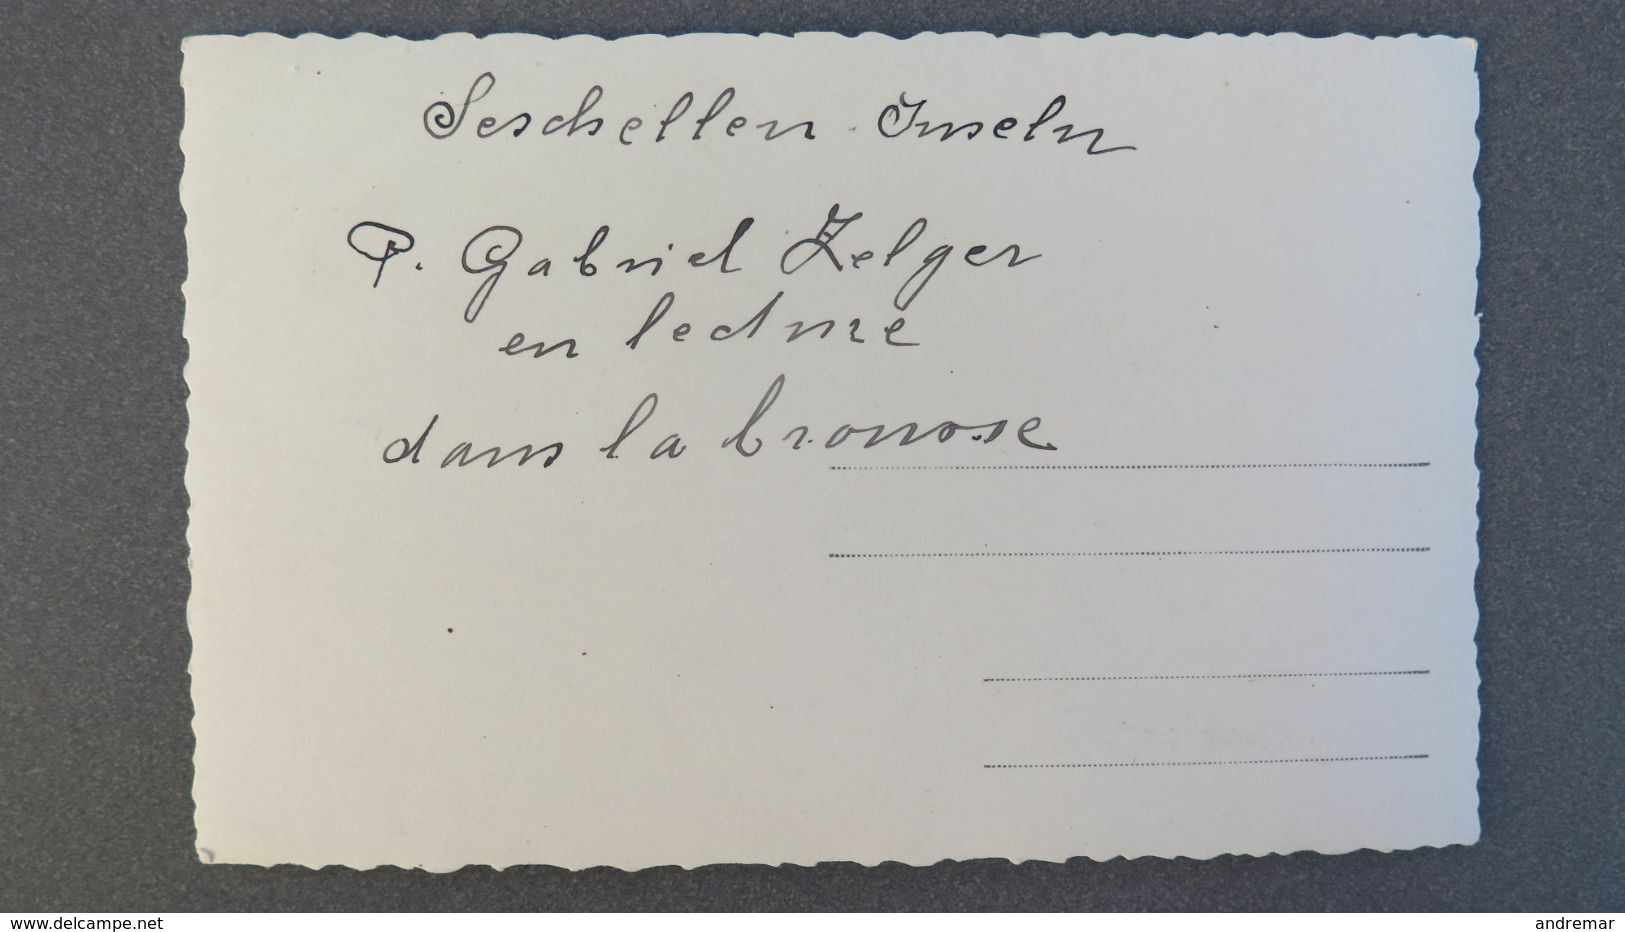 Seschellen-Inseln
P. Gabriel Zelger
en lecture
dans la brousse
delcampe.net
andremar